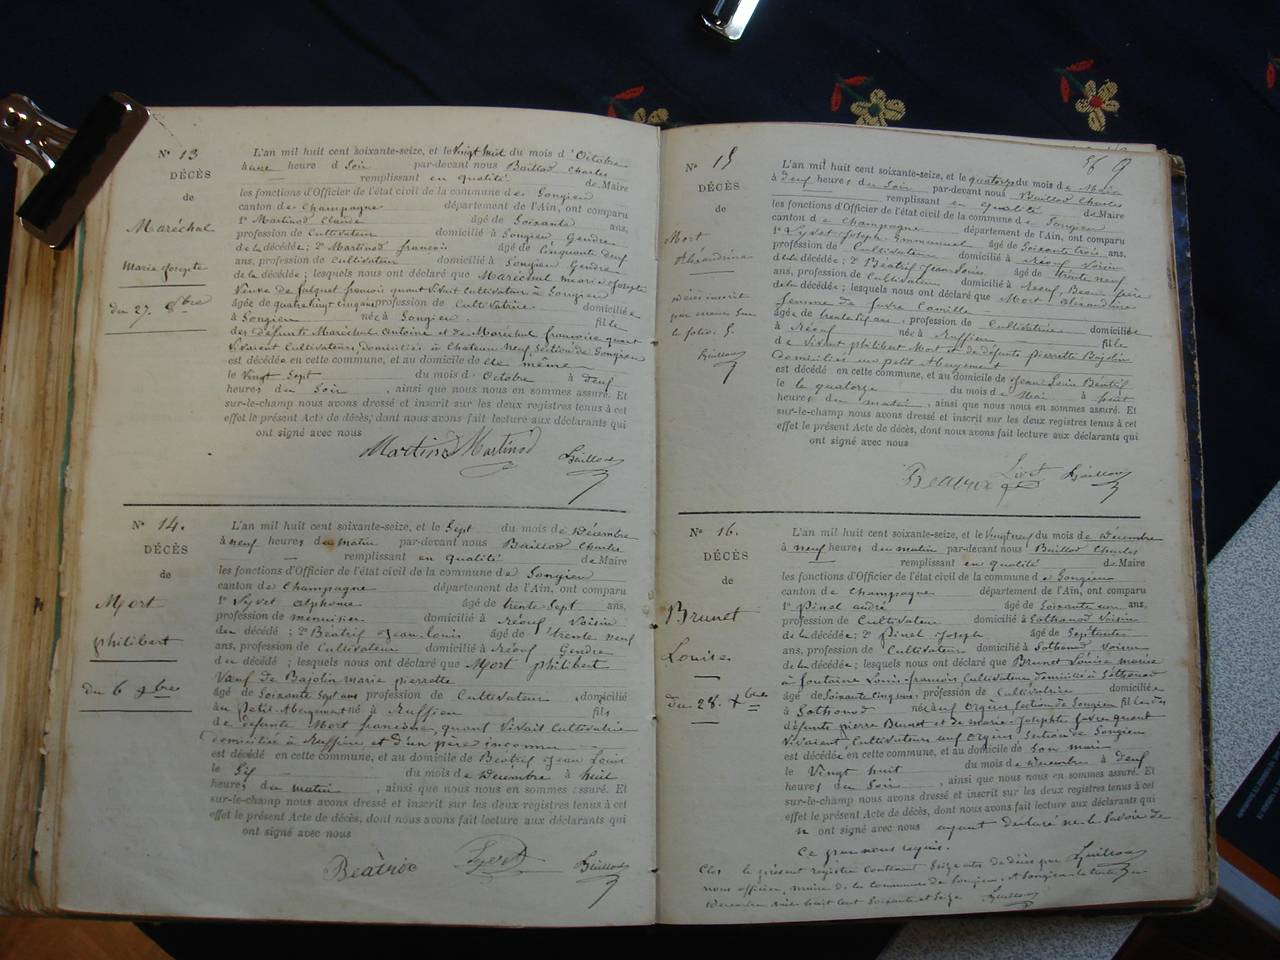 Nº 13
DÉCÈS
de
Maréchal
Marie Josepte
du 27. 8bre
L'an mil huit cent soixante-seize, et le Vingt huit du mois d'Octobre
à une heure d Soir par-devant nous Baillod Charles
remplissant en qualité de Maire
les fonctions d'Officier de l'état civil de la commune de Songieu
canton de Champagne département de l'Ain, ont comparu
1º Martinod Claude âgé de Soixante ans,
profession de Cultivateur domicilié à Songieu Gendre
de la décédée; 2º Martinod françois âgé de Cinquante deux
ans, profession de Cultivateur domicilié à Songieu Gendre
de la décédée; lesquels nous ont déclaré que Maréchal marie Josepte
Veuve de françois quant Vivait Cultivateur à Songieu
âgée de quatre Vingt cinq ans profession de Cultivatrice domiciliée
à Songieu née à Songieu fille
des défunts Maréchal Antoine et de Maréchal françoise quant
Vivaient Cultivateurs, domiciliés à Chateau neuf, Section de Songieu
est décédée en cette commune, et au domicile de elle même
le Vingt Sept du mois d Octobre à deux
heures du Soir, ainsi que nous nous en sommes assuré. Et
sur-le-champ nous avons dressé et inscrit sur les deux registres tenus à cet
effet le présent Acte de décès, dont nous avons fait lecture aux déclarants qui
ont signé avec nous
Martinod Martinod Baillod
Nº 14.
DÉCÈS
de
Mort
philibert
du 6 xbre
L'an mil huit cent soixante-seize, et le Sept du mois de Décembre
à neuf heures du matin par-devant nous Baillod Charles
remplissant en qualité de Maire
les fonctions d'Officier de l'état civil de la commune de Songieu
canton de Champagne département de l'Ain, ont comparu
1º Lyvet alphonse âgé de trente Sept ans,
profession de menuisier domicilié à Voisin
du décédé; 2º Béatrif Jean Louis âgé de trente neuf
ans, profession de Cultivateur domicilié à Gendre
du décédé; lesquels nous ont déclaré que Mort philibert
Veuf de Bajolin marie pierrette
âgé de Soixante Sept ans profession de Cultivateur domicilié
au petit Abergement né à Ruffieu fils
de défunte Mort françoise, quant Vivait Cultivatrice
domiciliée à Ruffieu et d'un père inconnu
est décédé en cette commune, et au domicile de Béatrif Jean Louis
le Six du mois de Décembre à huit
heures du matin, ainsi que nous nous en sommes assuré. Et
sur-le-champ nous avons dressé et inscrit sur les deux registres tenus à cet
effet le présent Acte de décès, dont nous avons fait lecture aux déclarants qui
ont signé avec nous
Béatrix Lyvet Baillod
56 9
Nº 15
DÉCÈS
de
Mort
Alexandrine
décès inscrit
par erreur sur
le folio 5.
Baillod
L'an mil huit cent soixante-seize, et le quatorze du mois de Mai
à deux heures du Soir par-devant nous Baillod Charles
remplissant en qualité de Maire
les fonctions d'Officier de l'état civil de la commune de Songieu
canton de Champagne département de l'Ain, ont comparu
1º Lyvet Joseph Emmanuel âgé de Soixante trois ans,
profession de Cultivateur domicilié à Voisin
de la décédée; 2º Béatrif Jean Louis âgé de trente neuf
ans, profession de Cultivateur domicilié à Beau frère
de la décédée; lesquels nous ont déclaré que Mort Alexandrine
femme de favre Camille
âgée de ans, profession de Cultivatrice domiciliée
à née à Ruffieu fille
de Vivant philibert Mort et de défunte pierrette Bajolin
Domiciliés au petit Abergement
est décédé en cette commune, et au domicile de Jean Louis Béatrif
le le quatorze du mois de Mai à
heures du matin, ainsi que nous nous en sommes assuré. Et
sur-le-champ nous avons dressé et inscrit sur les deux registres tenus à cet
effet le présent Acte de décès, dont nous avons fait lecture aux déclarants qui
ont signé avec nous
Béatrix Livet Baillod
Nº 16.
DÉCÈS
de
Brunet
Louise
du 28. xbre
L'an mil huit cent soixante-seize, et le Vingt neuf du mois de Décembre
à neuf heures du matin par-devant nous Baillod Charles
remplissant en qualité de Maire
les fonctions d'Officier de l'état civil de la commune de Songieu
canton de Champagne département de l'Ain, ont comparu
1º Pinel andré âgé de Soixante un ans,
profession de Cultivateur domicilié à Sothonod Voisin
de la décédée; 2º Pinel Joseph âgé de Septante
ans, profession de Cultivateur domicilié à Sothonod Voisin
de la décédée; lesquels nous ont déclaré que Brunet Louise mariée
à fontaine Louis françois Cultivateur, domicilié à Sothonod
âgé de Soixante cinq ans, profession de Cultivatrice domiciliée
à Sothonod née aux Orgières Section de Songieu fille des
défunts pierre Brunet et de marie Josephte favre quant
Vivaient, Cultivateurs aux Orgières Section de Songieu
est décédée en cette commune, et au domicile de Son mari
le Vingt huit du mois de Décembre à deux
heures du Soir, ainsi que nous nous en sommes assuré. Et
sur-le-champ nous avons dressé et inscrit sur les deux registres tenus à cet
effet le présent Acte de décès, dont nous avons fait lecture aux déclarants qui
n ont signé avec nous ayant déclaré ne le Savoir de
Ce par nous requis. Baillod
Clos le présent registre Contenant Seize actes de décès par
nous officier, maire de la Commune de Songieu. A Songieu le trente un
Décembre mil huit Cent Soixante et Seize Baillod